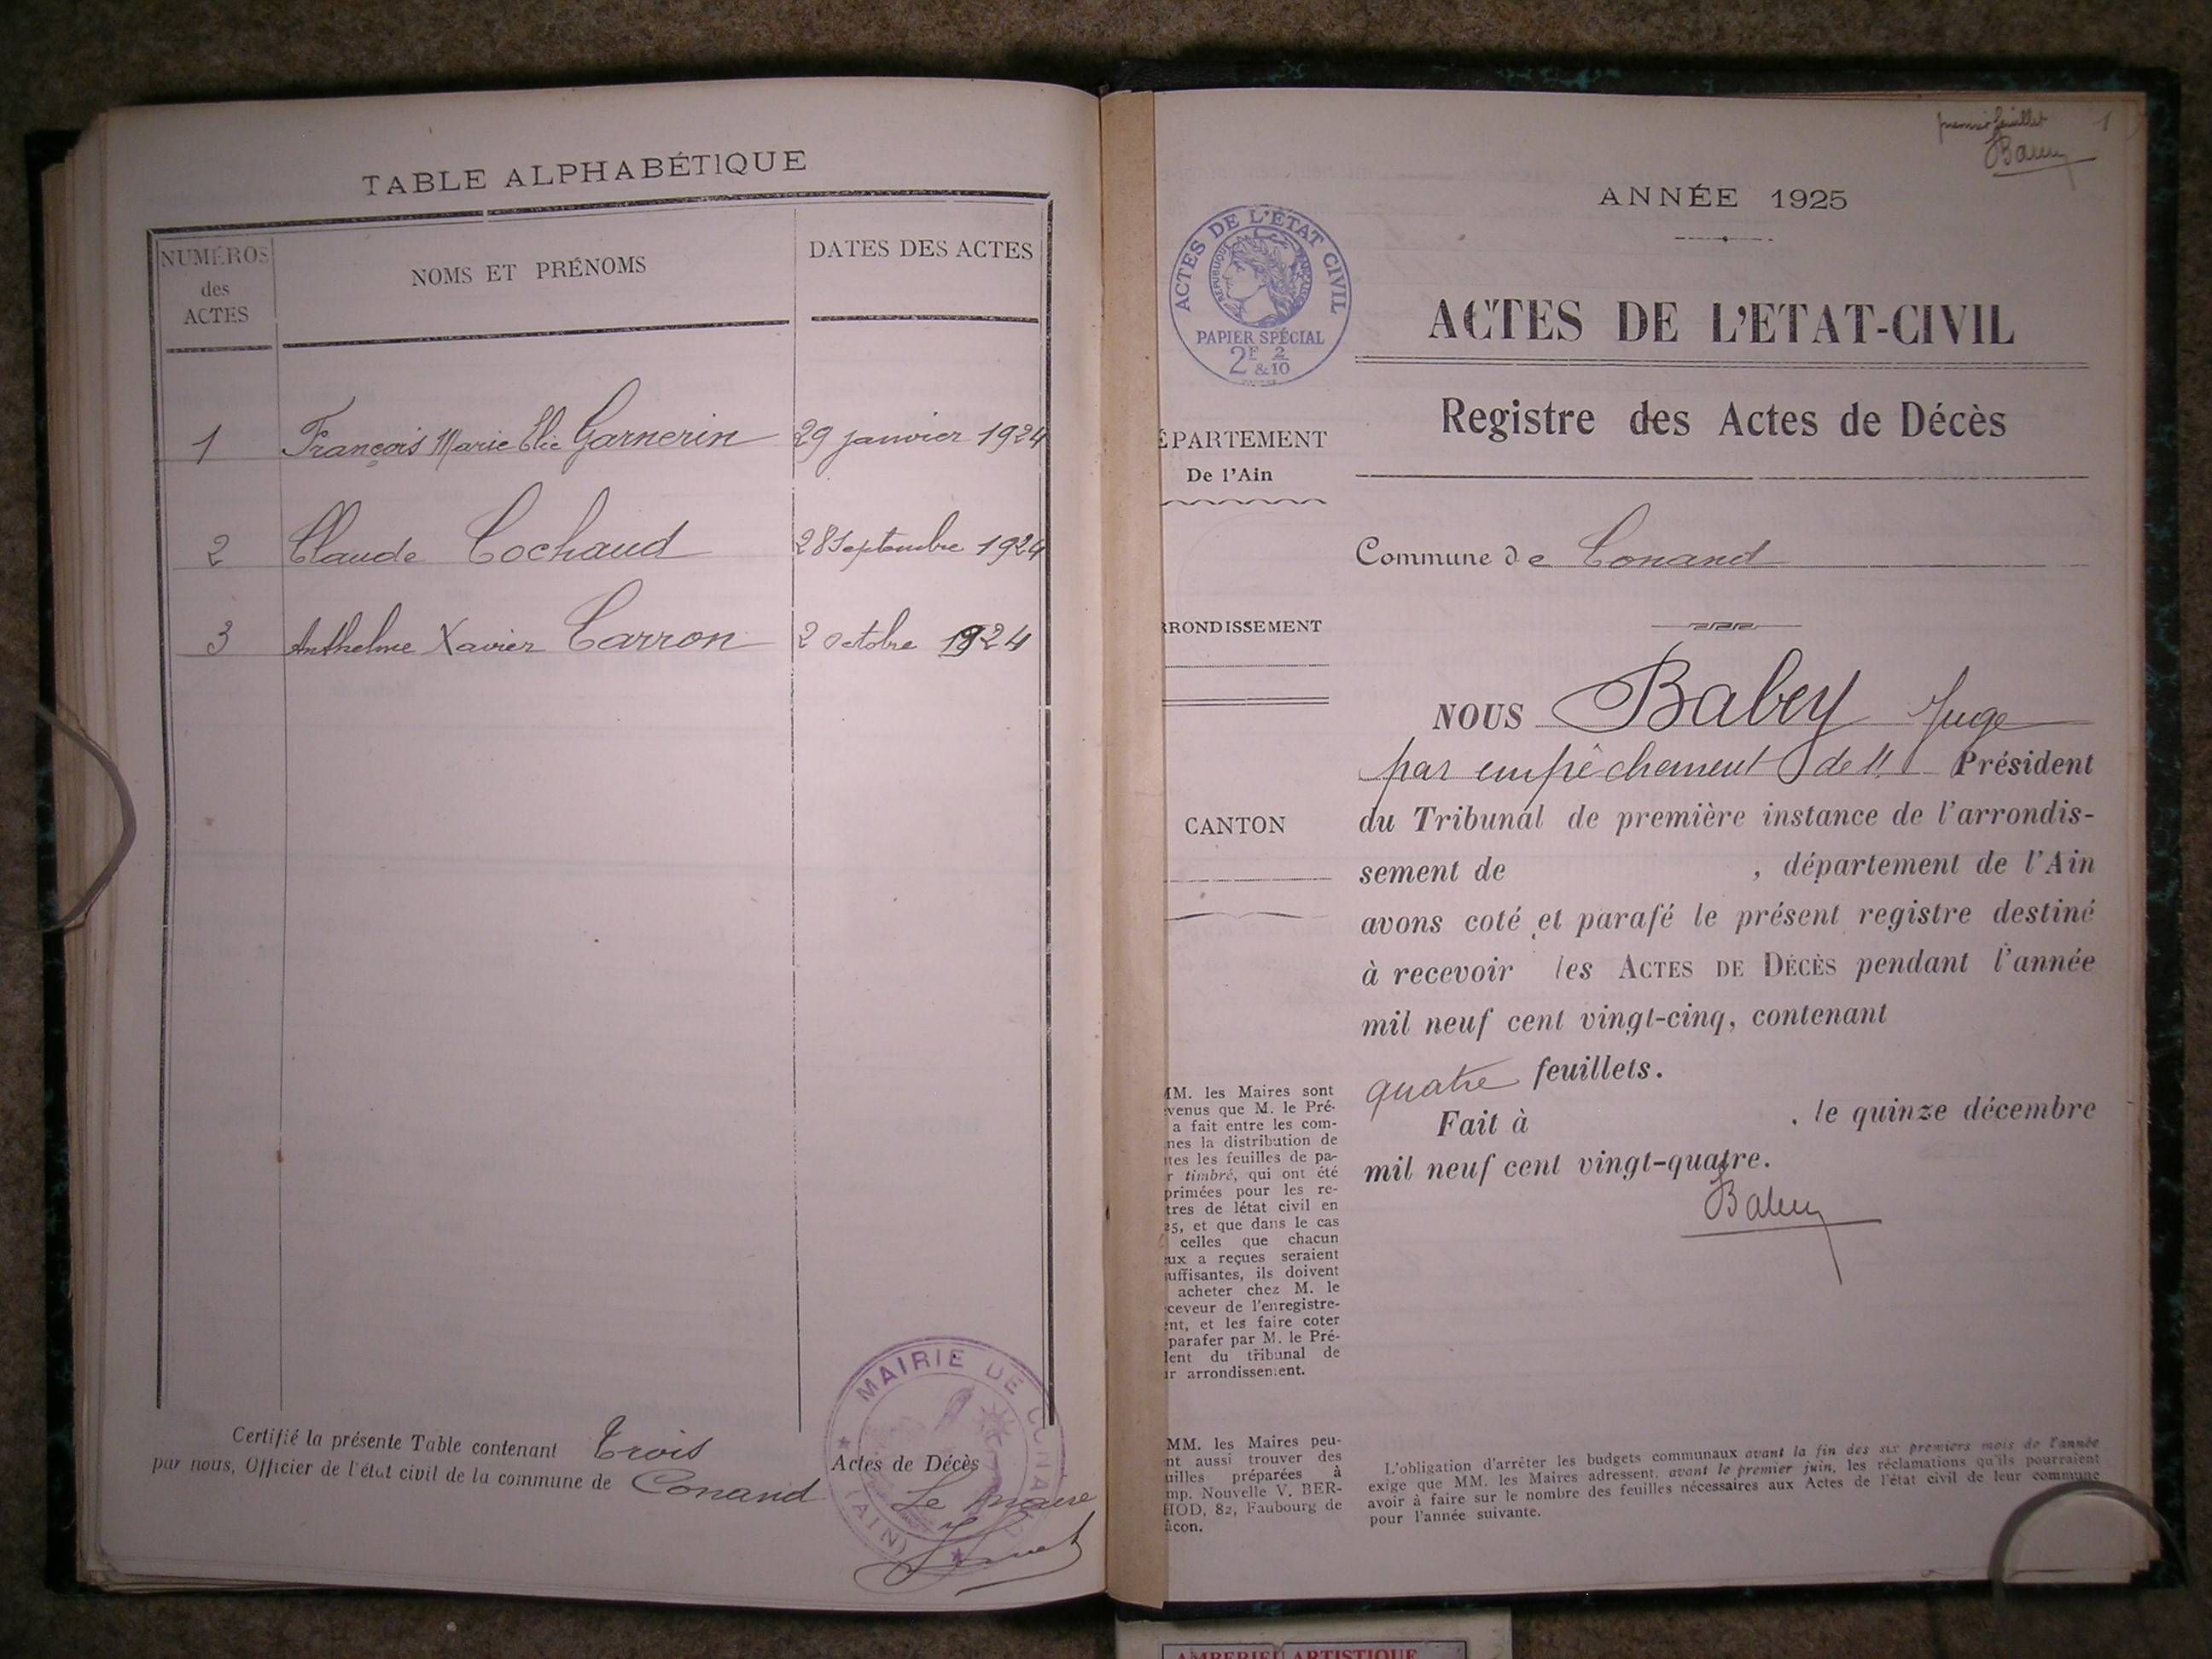 TABLE ALPHABÉTIQUE
NUMÉROS
des
ACTES
NOMS ET PRÉNOMS
DATES DES ACTES
1 François Marie Elie Garnerin 29 janvier 1924
2 Claude Cochaud 28 Septembre 1924
3 Anthelme Xavier Carron 2 octobre 1924
Certifié la présente Table contenant trois Actes de Décès
par nous, Officier de l'état civil de la commune de Conand
Le Maire
MAIRIE DE CONAND
(AIN)
premier feuillet 1
Babey
ANNÉE 1925
ACTES DE L'ÉTAT CIVIL
RÉPUBLIQUE FRANÇAISE
PAPIER SPÉCIAL
2F 2
&10
ACTES DE L'ETAT-CIVIL
Registre des Actes de Décès
ÉPARTEMENT
De l'Ain
Commune de Conand
RRONDISSEMENT
CANTON
NOUS Babey Juge
par empêchement de M. Président
du Tribunal de première instance de l'arrondis-
sement de , département de l'Ain
avons coté et parafé le présent registre destiné
à recevoir les ACTES DE DÉCÈS pendant l'année
mil neuf cent vingt-cinq, contenant
quatre feuillets.
Fait à , le quinze décembre
mil neuf cent vingt-quatre.
Babey
MM. les Maires sont
venus que M. le Pré-
a fait entre les com-
nes la distribution de
tes les feuilles de pa-
r timbré, qui ont été
primées pour les re-
tres de létat civil en
25, et que dans le cas
celles que chacun
eux a reçues seraient
uffisantes, ils doivent
acheter chez M. le
ceveur de l'enregistre-
ent, et les faire coter
parafer par M. le Pré-
dent du tribunal de
ur arrondissement.
MM. les Maires peu-
nt aussi trouver des
uilles préparées à
mp. Nouvelle V. BER-
HOD, 82, Faubourg de
âcon.
L'obligation d'arrêter les budgets communaux avant la fin des six premiers mois de l'année
exige que MM. les Maires adressent, avant le premier juin, les réclamations qu'ils pourraient
avoir à faire sur le nombre des feuilles nécessaires aux Actes de l'état civil de leur commune
pour l'année suivante.
AMBERIEU ARTISTIQUE